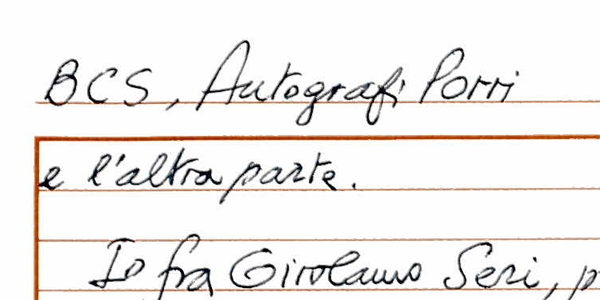 BCS, Autografi Porri
e l'altra parte.
Io fra Girolamo Seri, p